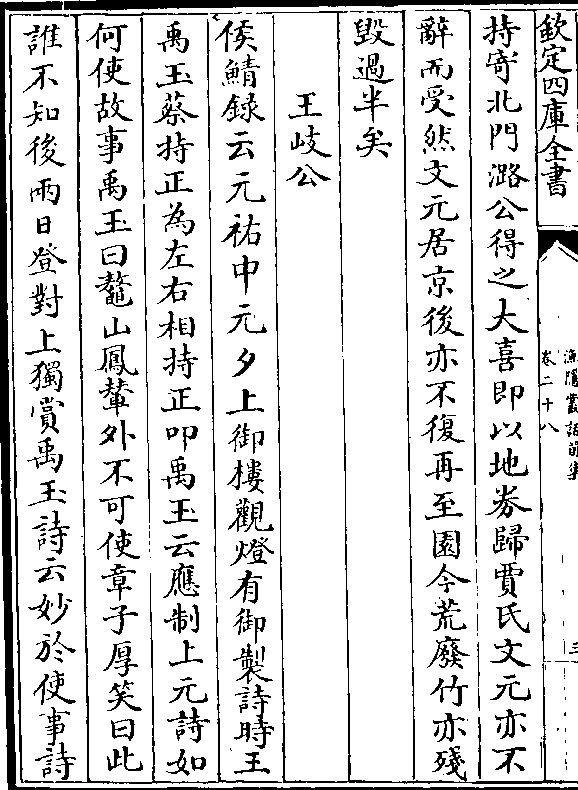 欽定四庫全書
漁隱叢話前集
卷二十八
三
持寄北門潞公得之大喜即以地券歸賈氏文元亦不
辭而受然文元居京後亦不復再至園今荒廢竹亦殘
毀過半矣
王岐公
侯鯖録云元祐中元夕上御樓觀燈有御製詩時王
禹玉蔡持正為左右相持正叩禹玉云應制上元詩如
何使故事禹玉曰鼇山鳳輦外不可使章子厚笑曰此
誰不知後兩日登對上獨賞禹玉詩云妙於使事詩